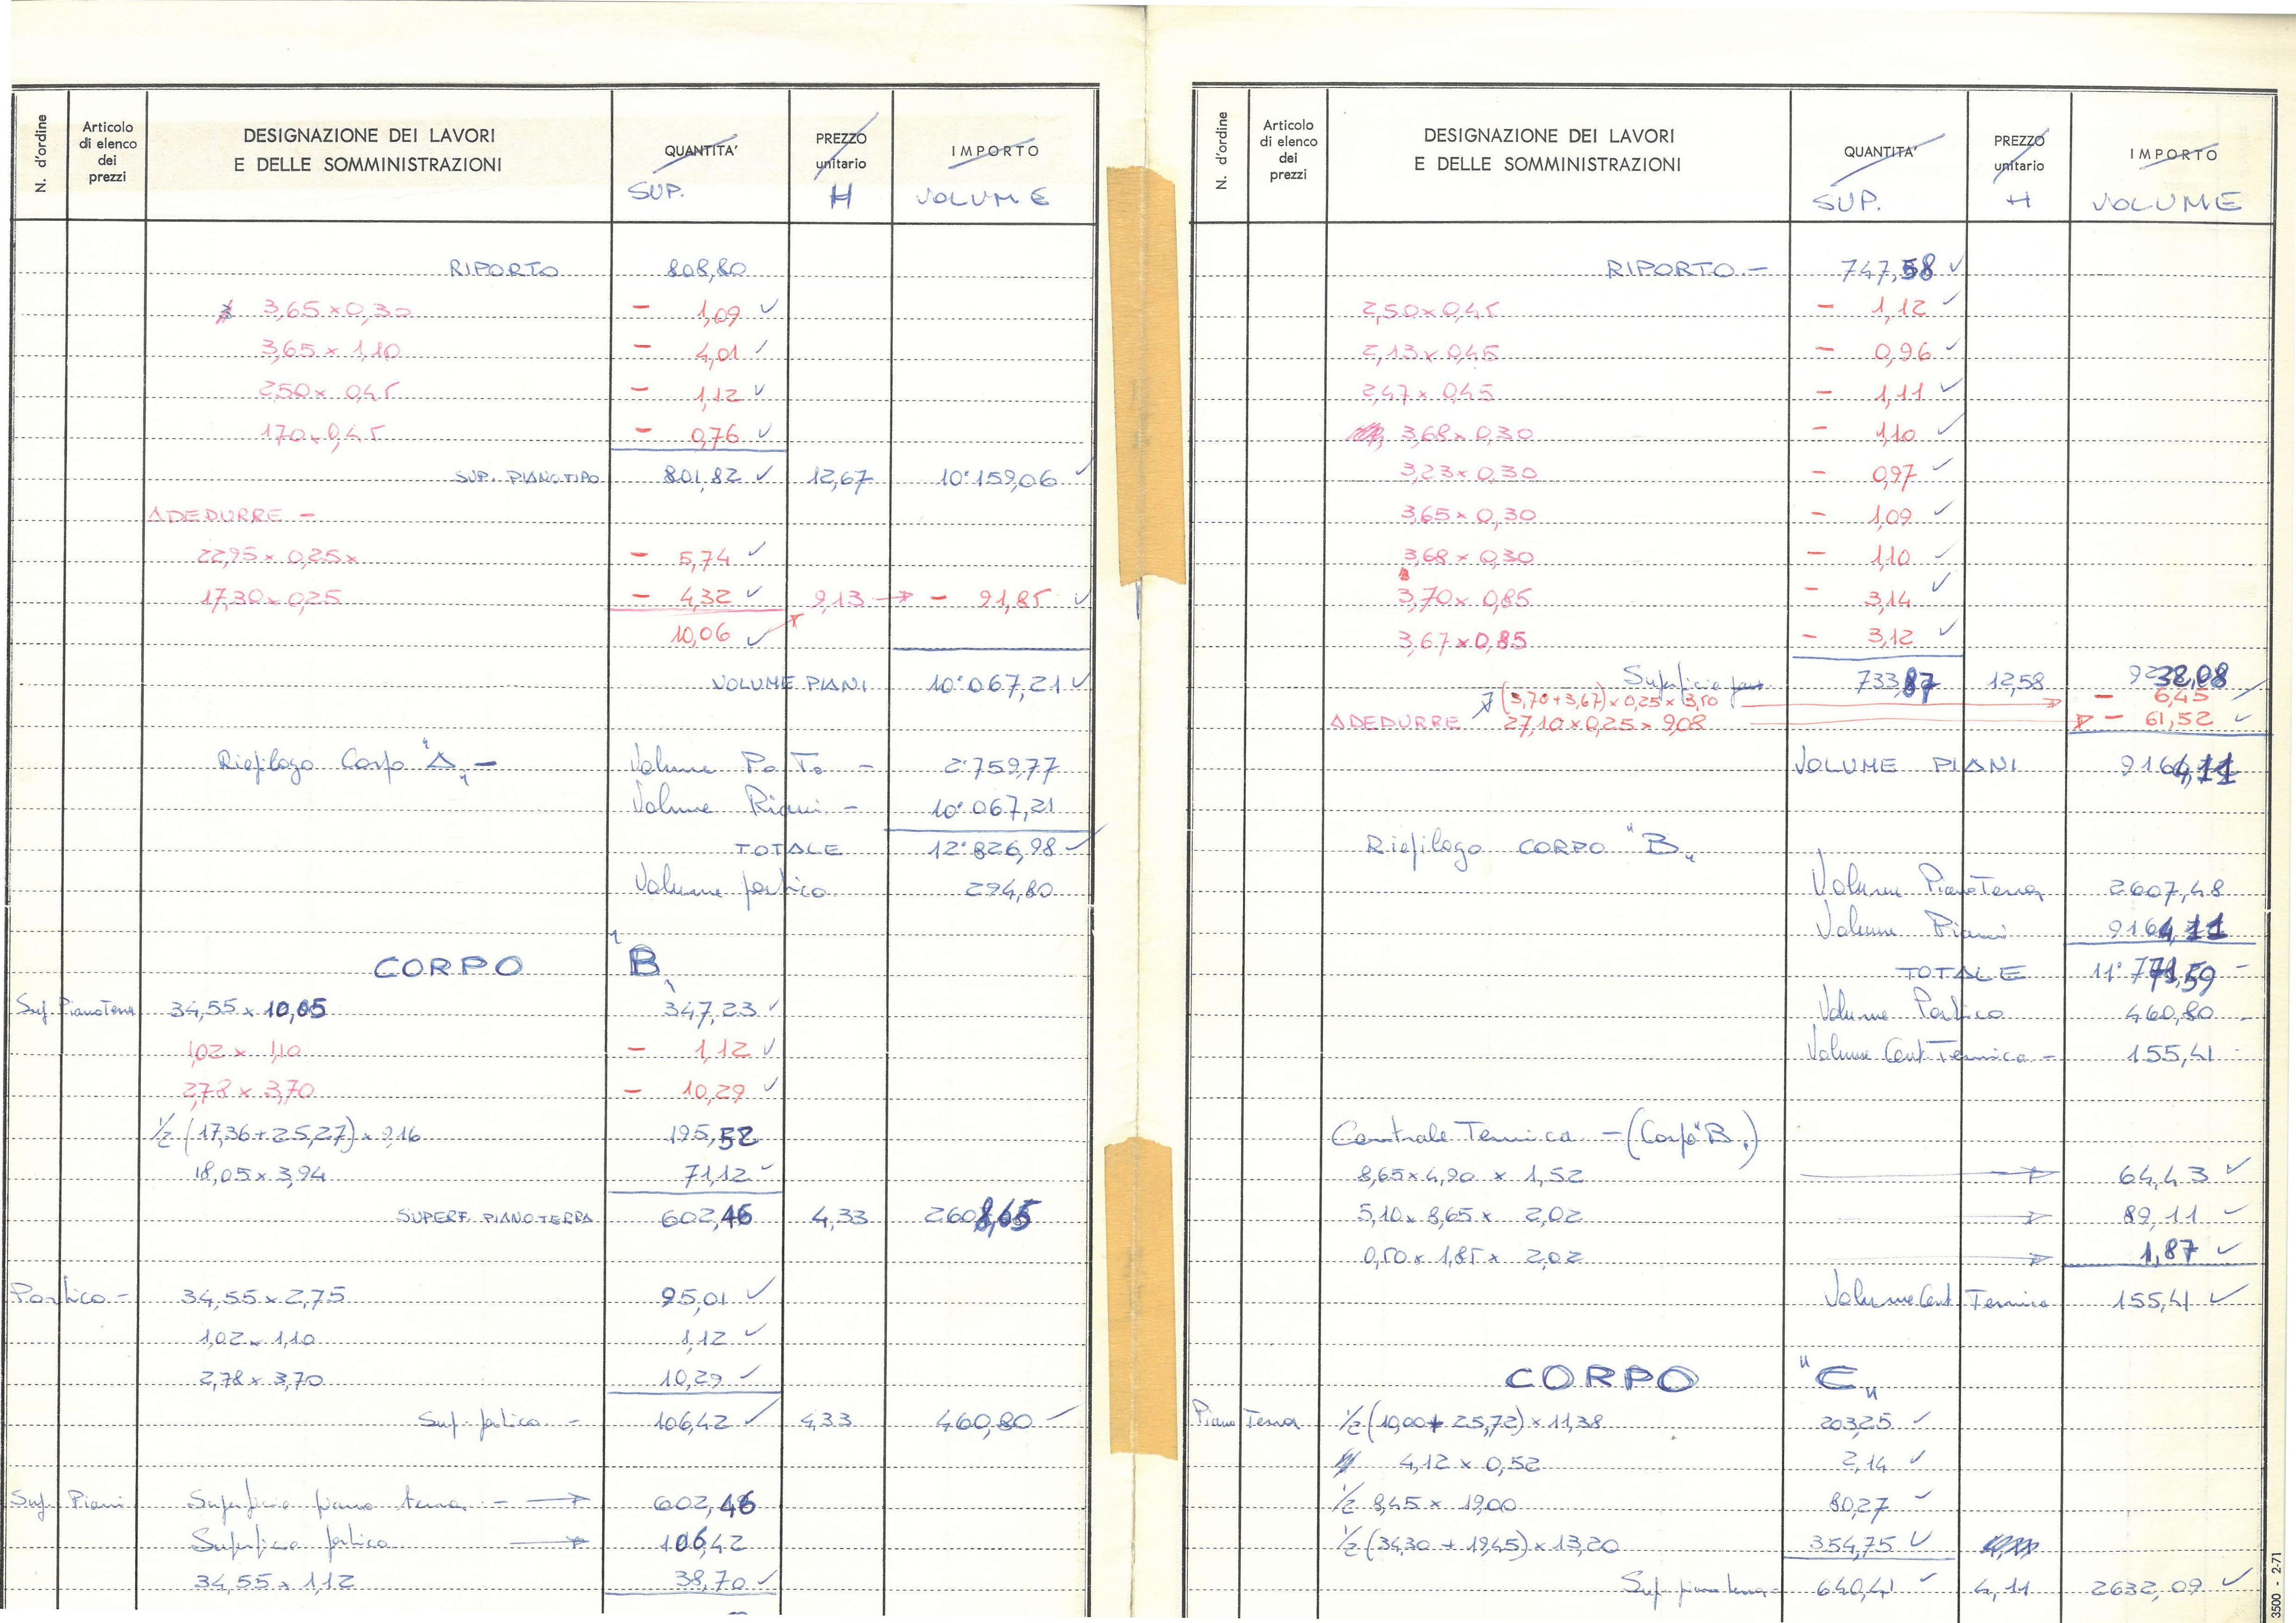 N. d'ordine
Articolo di elenco dei prezzi
DESIGNAZIONE DEI LAVORI E DELLE SOMMINISTRAZIONI
QUANTITA' SUP.
PREZZO unitario H
IMPORTO VOLUME
RIPORTO 808,80
3,65 x 0,30 - 1,09 ✓
3,65 x 1,10 - 4,01 ✓
2,50 x 0,45 - 1,12 ✓
1,70 x 0,45 - 0,76 ✓
SUP. PIANO TIPO 801,82 ✓ 12,67 10'159,06 ✓
A DEDURRE -
22,95 x 0,25 x - 5,74 ✓
17,30 x 0,25 - 4,32 ✓ 9,13 → - 91,85 ✓
10,06 ✓
VOLUME PIANI 10'067,21 ✓
Riepilogo Corpo "A" - Volume Po To - 2'759,77
Volume Piani - 10'067,21
TOTALE 12'826,98 ✓
Volume portico 294,80
CORPO "B"
Sup. Piano Terra 34,55 x 10,05 347,23 ✓
1,02 x 1,10 - 1,12 ✓
2,78 x 3,70 - 10,29 ✓
1/2 (17,36 + 25,27) x 9,16 195,52
18,05 x 3,94 71,12 ✓
SUPERF. PIANO TERRA 602,46 4,33 2608,65
Portico - 34,55 x 2,75 95,01 ✓
1,02 x 1,10 1,12 ✓
2,78 x 3,70 10,29 ✓
Sup. portico - 106,42 ✓ 4,33 460,80 ✓
Sup. Piani Superficie piano terra - → 602,46
Superficie portico → 106,42
34,55 x 1,12 38,70 ✓
N. d'ordine
Articolo di elenco dei prezzi
DESIGNAZIONE DEI LAVORI E DELLE SOMMINISTRAZIONI
QUANTITA' SUP.
PREZZO unitario H
IMPORTO VOLUME
RIPORTO - 747,58 ✓
2,50 x 0,45 - 1,12 ✓
2,13 x 0,45 - 0,96 ✓
2,47 x 0,45 - 1,11 ✓
3,68 x 0,30 - 1,10 ✓
3,23 x 0,30 - 0,97 ✓
3,65 x 0,30 - 1,09 ✓
3,68 x 0,30 - 1,10 ✓
3,70 x 0,85 - 3,14 ✓
3,67 x 0,85 - 3,12 ✓
Superficie 733,87 12,58 9232,08
(3,70 + 3,67) x 0,25 x 3,50 → - 6,45 ✓
A DEDURRE 27,10 x 0,25 x 9,08 → - 61,52 ✓
VOLUME PIANI 9164,11
Riepilogo CORPO "B"
Volume Piano Terra 2607,48
Volume Piani 9164,11
TOTALE 11'771,59 -
Volume Portico 460,80 -
Volume Cent. Termica - 155,41 -
Centrale Termica - (Corpo "B")
8,65 x 4,90 x 1,52 → 64,43 ✓
5,10 x 8,65 x 2,02 → 89,11 ✓
0,50 x 1,85 x 2,02 → 1,87 ✓
Volume Cent Termica 155,41 ✓
CORPO "C"
Piano Terra 1/2 (10,00 + 25,72) x 11,38 203,25 ✓
4,12 x 0,52 2,14 ✓
1/2 8,45 x 19,00 80,27 ✓
1/2 (34,30 + 19,45) x 13,20 354,75 ✓
Sup. piano terra - 640,41 ✓ 4,11 2632,09 ✓
3500 - 2-71